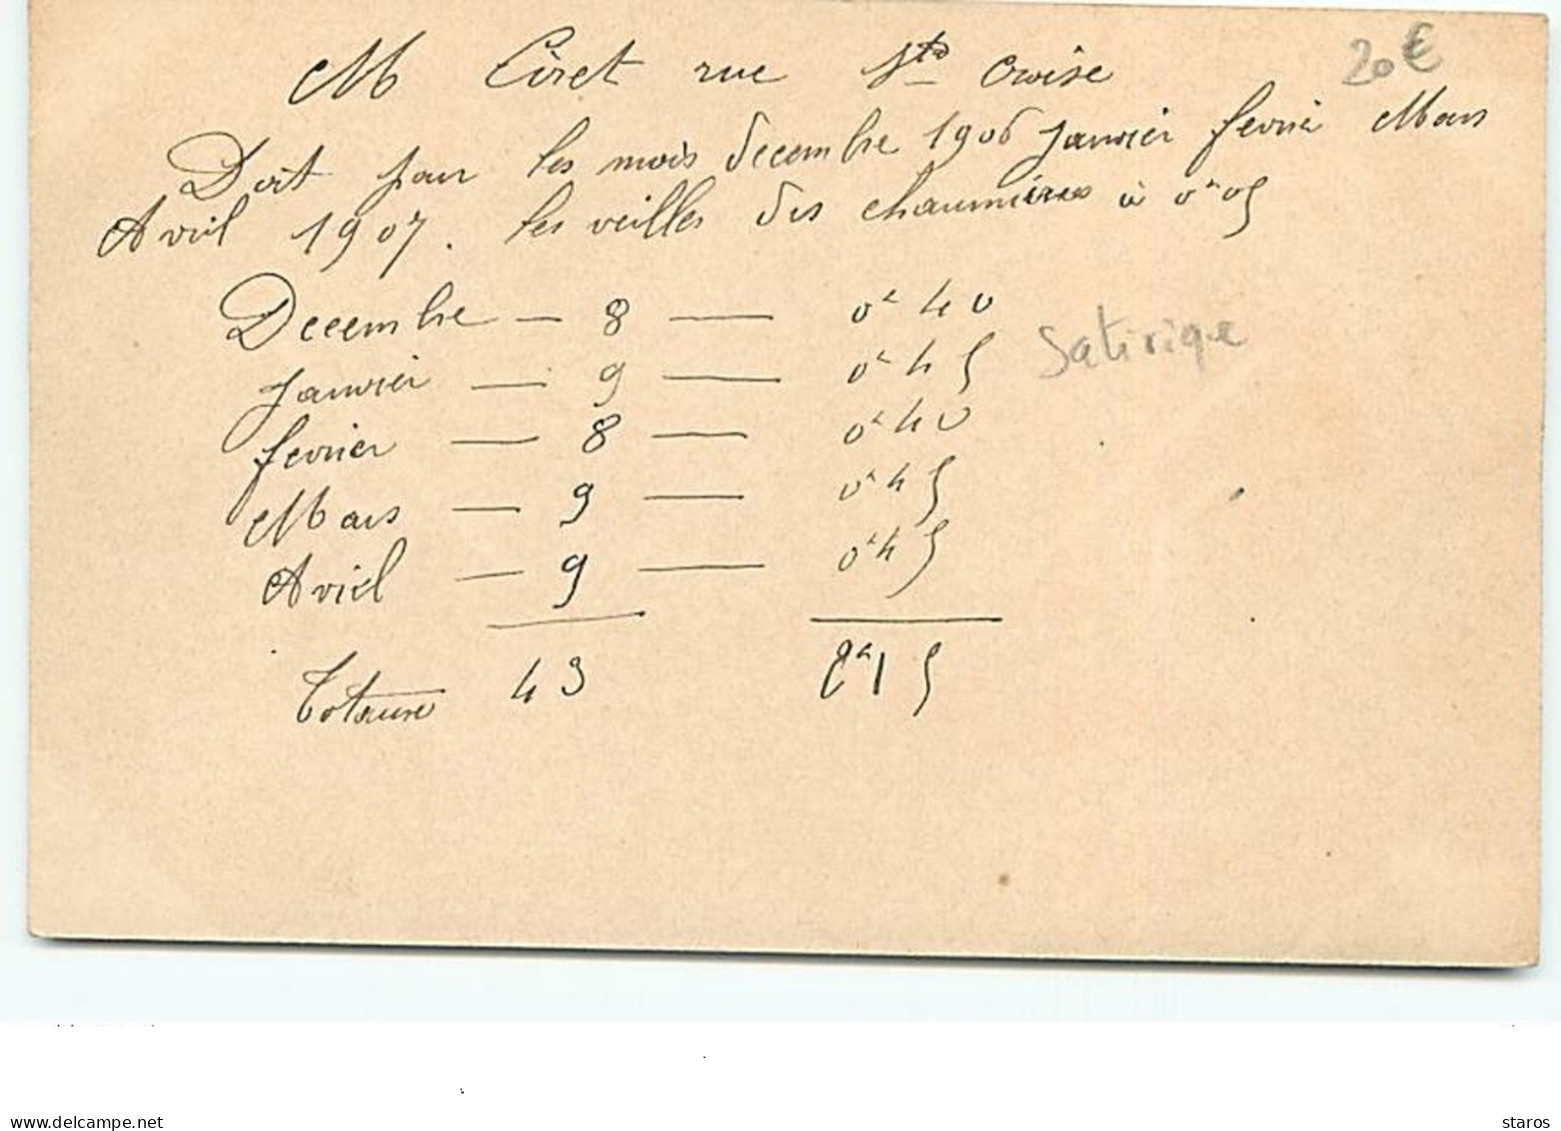 M Ciret rue Ste Croise 20€
Doit pour les mois decembre 1906 Janvier fevrier Mars
Avril 1907. les veilles des chaumières à 0f 05
Decembre — 8 — 0f 40
Janvier — 9 — 0f 45
Satirique
fevrier — 8 — 0f 40
Mars — 9 — 0f 45
Avril — 9 — 0f 45
Totaux 43 2f 15
www.delcampe.net staros